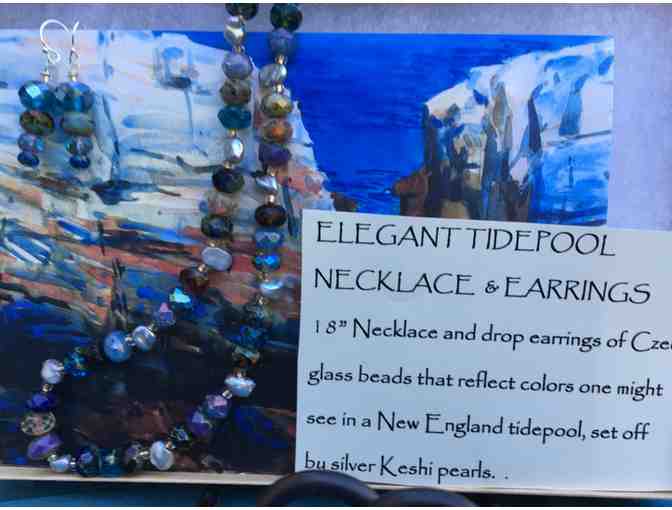 ELEGANT TIDEPOOL
NECKLACE & EARRINGS
18” Necklace and drop earrings of Cze
glass beads that reflect colors one might
see in a New England tidepool, set off
by silver Keshi pearls. .